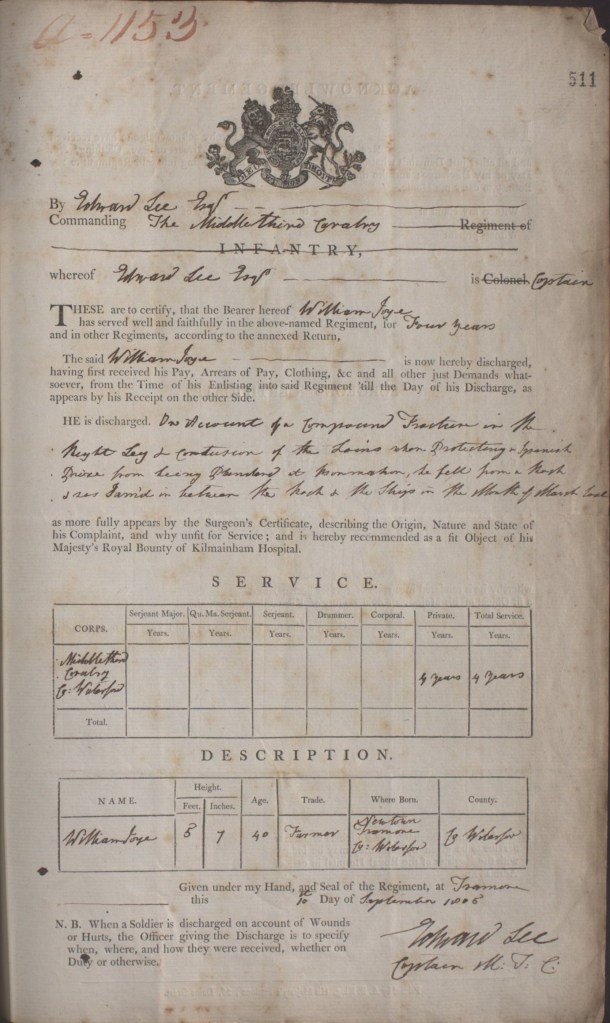 a-1153
511
By Edward Lee Esqr
Commanding The Middlethird Cavalry Regiment of
INFANTRY,
whereof Edward Lee Esqr is Colonel, Captain
THESE are to certify, that the Bearer hereof William Joye
has served well and faithfully in the above-named Regiment, for Four Years
and in other Regiments, according to the annexed Return,
The said William Joye is now hereby discharged,
having first received his Pay, Arrears of Pay, Clothing, &c and all other just Demands what-
soever, from the Time of his Enlisting into said Regiment 'till the Day of his Discharge, as
appears by his Receipt on the other Side.
HE is discharged. On Account of a Compound Fracture in the
Right Leg & Contusion of the Loins when Protecting a Spanish
Prize from being Plundered at he fell from a Rock
& was Jam'd in between the Rock & the Ship in the Month of March
as more fully appears by the Surgeon's Certificate, describing the Origin, Nature and State of
his Complaint, and why unfit for Service; and is hereby recommended as a fit Object of his
Majesty's Royal Bounty of Kilmainham Hospital.
SERVICE.
CORPS. Serjeant Major. Qu. Ma. Serjeant. Serjeant. Drummer. Corporal. Private. Total Service.
Years. Years. Years. Years. Years. Years. Years.
Middlethird
Cavalry
Co: Waterford
4 years 4 years
Total.
DESCRIPTION.
NAME. Height. Age. Trade. Where Born. County.
Feet. Inches.
William Joye 5 7 40 Farmer Newtown Tramore Co: Waterford Co Waterford
Given under my Hand, and Seal of the Regiment, at Tramore
this 10 Day of September 1806
N. B. When a Soldier is discharged on account of Wounds
or Hurts, the Officer giving the Discharge is to specify
when, where, and how they were received, whether on
Duty or otherwise.
Edward Lee
Captain M. T. C.